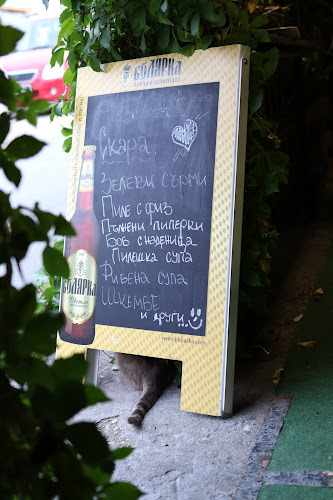 БОЛЯРКА
Скара,
Зелеви сърми
Пиле с ориз
Пълнени пиперки
Боб с наденица
Пилешка супа
Рибена супа
Шкембе
и други...
БОЛЯРКА
www.boliarka.com